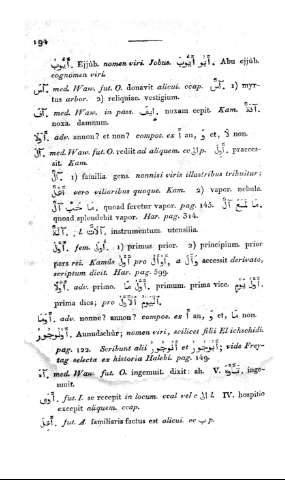 194
أَيُّوبُ. Ejjûb. nomen viri. Jobus. أَبُو أَيُّوبَ. Abu ejjûb.
cognomen viri.
آسَ. med. Waw. fut. O. donavit alicui. ccap. آسٌ. 1) myr-
tus arbor. 2) reliquiae. vestigium.
med. Waw. in pass. إِيفَ. noxam cepit. Kam. آفَةٌ.
noxa. damnum.
أَوَلَا. adv. annon? et non? compos. ex أَ an, وَ et, لَا non.
آلَ. med. Waw. fut. O. rediit ad aliquem. cc إلى p. praeces-
sit. Kam.
آلٌ. 1) familia. gens. nonnisi viris illustribus tribuitur;
أَهْلٌ vero vilioribus quoque. Kam. 2) vapor. nebula.
مَا خَبَّ آلٌ. quoad feretur vapor. pag. 145. مَا لَمَعَ آلٌ.
quoad splendebit vapor. Har. pag. 314.
آلَةٌ. pl. آلَاتٌ. instrumentum. utensilia.
أَوَّلُ. fem. أُولَى. 1) primus prior. 2) principium. prior
pars rei. Kamûs أَوَّلُ pro أَوْأَلُ, a وَأَلَ accessit derivato,
scriptum dicit. Har. pag. 599.
أَوَّلًا. adv. primo. أَوَّلَ مَا. primum. prima vice. أَوَّلَ يَوْمٍ.
prima dies; pro اليَوْمُ الأَوَّلُ.
أَوَمَا. adv. nonne? annon? compos. ex أَ an, وَ et, مَا non.
أَنُوجُورُ. Aunudschûr; nomen viri, scilicet filii El ichschîdi.
pag. 122. Scribunt alii أُنُوجُورُ et أَنْوجُور; vide Frey-
tag selecta ex historia Halebi. pag. 149.
آهَ. med. Waw. fut. O. ingemuit. dixit: ah. V. تَأَوَّهَ. inge-
muit.
أَوَى. fut. I. se recepit in locum. ccal vel c إلى l. IV. hospitio
excepit aliquem. ccap.
fut. A. familiaris factus est alicui. cc ب p.